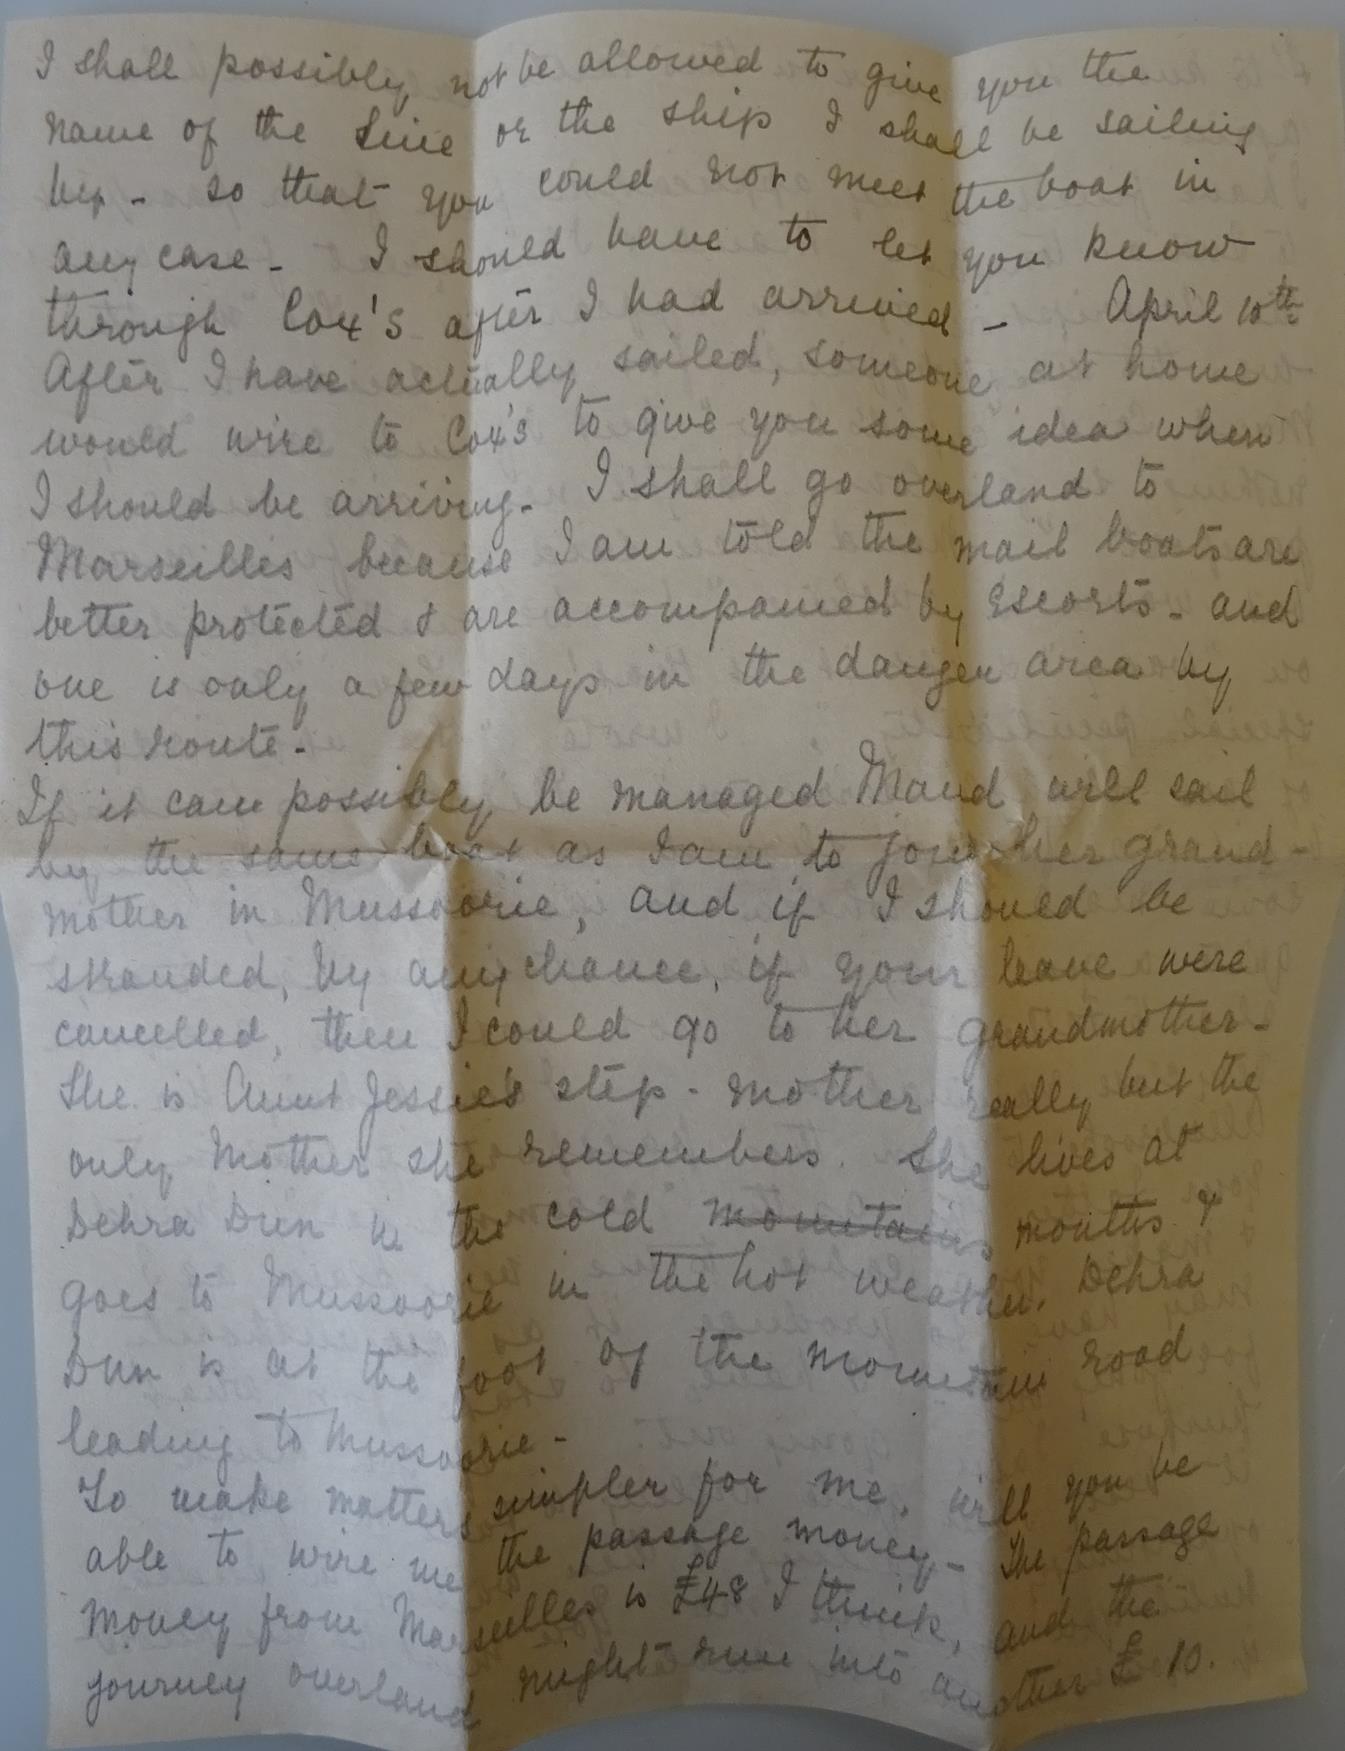 I shall possibly not be allowed to give you the
name of the Line or the ship I shall be sailing
by - so that you could not meet the boat in
any case - I should have to let you know
through Cox's after I had arrived - April 10th
After I have actually sailed, someone at home
would wire to Cox's to give you some idea when
I should be arriving - I shall go overland to
Marseilles because I am told the mail boats are
better protected & are accompanied by escorts - and
one is only a few days in the danger area by
this route -
If it can possibly be managed Maud will sail
by the same boat as I am to join her grand-
mother in Mussoorie, and if I should be
stranded, by any chance, if your leave were
cancelled, then I could go to her grandmother -
She is Aunt Jessie's step-mother really but the
only Mother she remembers. She lives at
Dehra Dun in the cold mountains months &
goes to Mussoorie in the hot weather. Dehra
Dun is at the foot of the mountain road
leading to Mussoorie -
To make matters simpler for me, will you be
able to wire me the passage money - The passage
money from Marseilles is £48 I think, and the
journey overland might run into another £10.